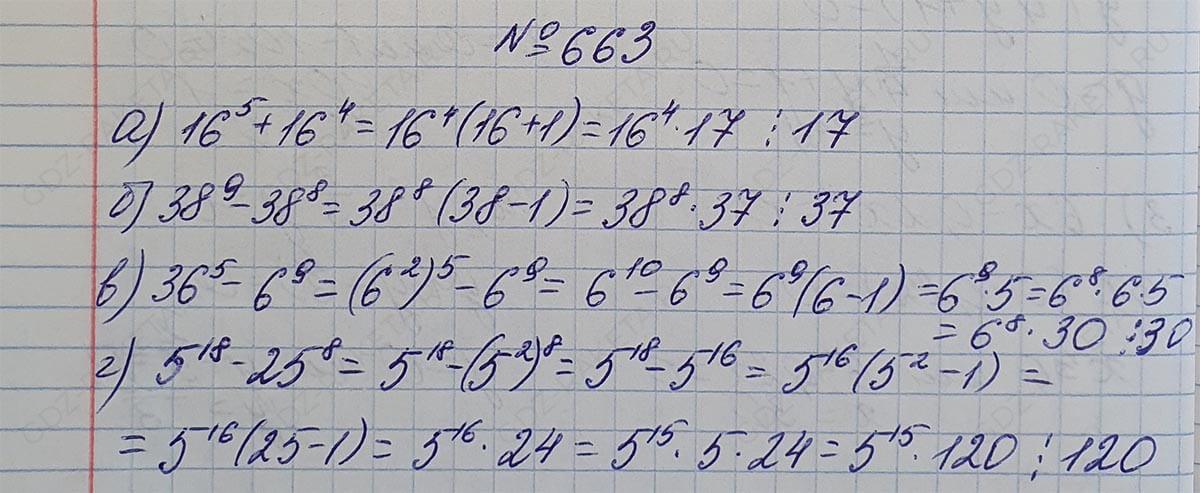 №663
а) 16⁵+16⁴=16⁴(16+1)=16⁴·17 ⋮ 17
б) 38⁹-38⁸=38⁸(38-1)=38⁸·37 ⋮ 37
в) 36⁵-6⁹=(6²)⁵-6⁹=6¹⁰-6⁹=6⁹(6-1)=6⁹·5=6⁸·6·5
=6⁸·30 ⋮ 30
г) 5¹⁸-25⁸=5¹⁸-(5²)⁸=5¹⁸-5¹⁶=5¹⁶(5²-1)=
=5¹⁶(25-1)=5¹⁶·24=5¹⁵·5·24=5¹⁵·120 ⋮ 120